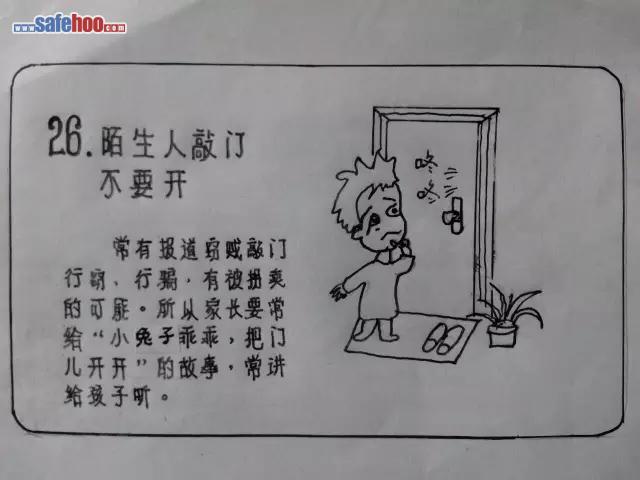 www.safehoo.com
26.陌生人敲门
不要开
常有报道窃贼敲门
行窃、行骗,有被拐卖
的可能。所以家长要常
给“小兔子乖乖,把门
儿开开”的故事,常讲
给孩子听。
咚
咚